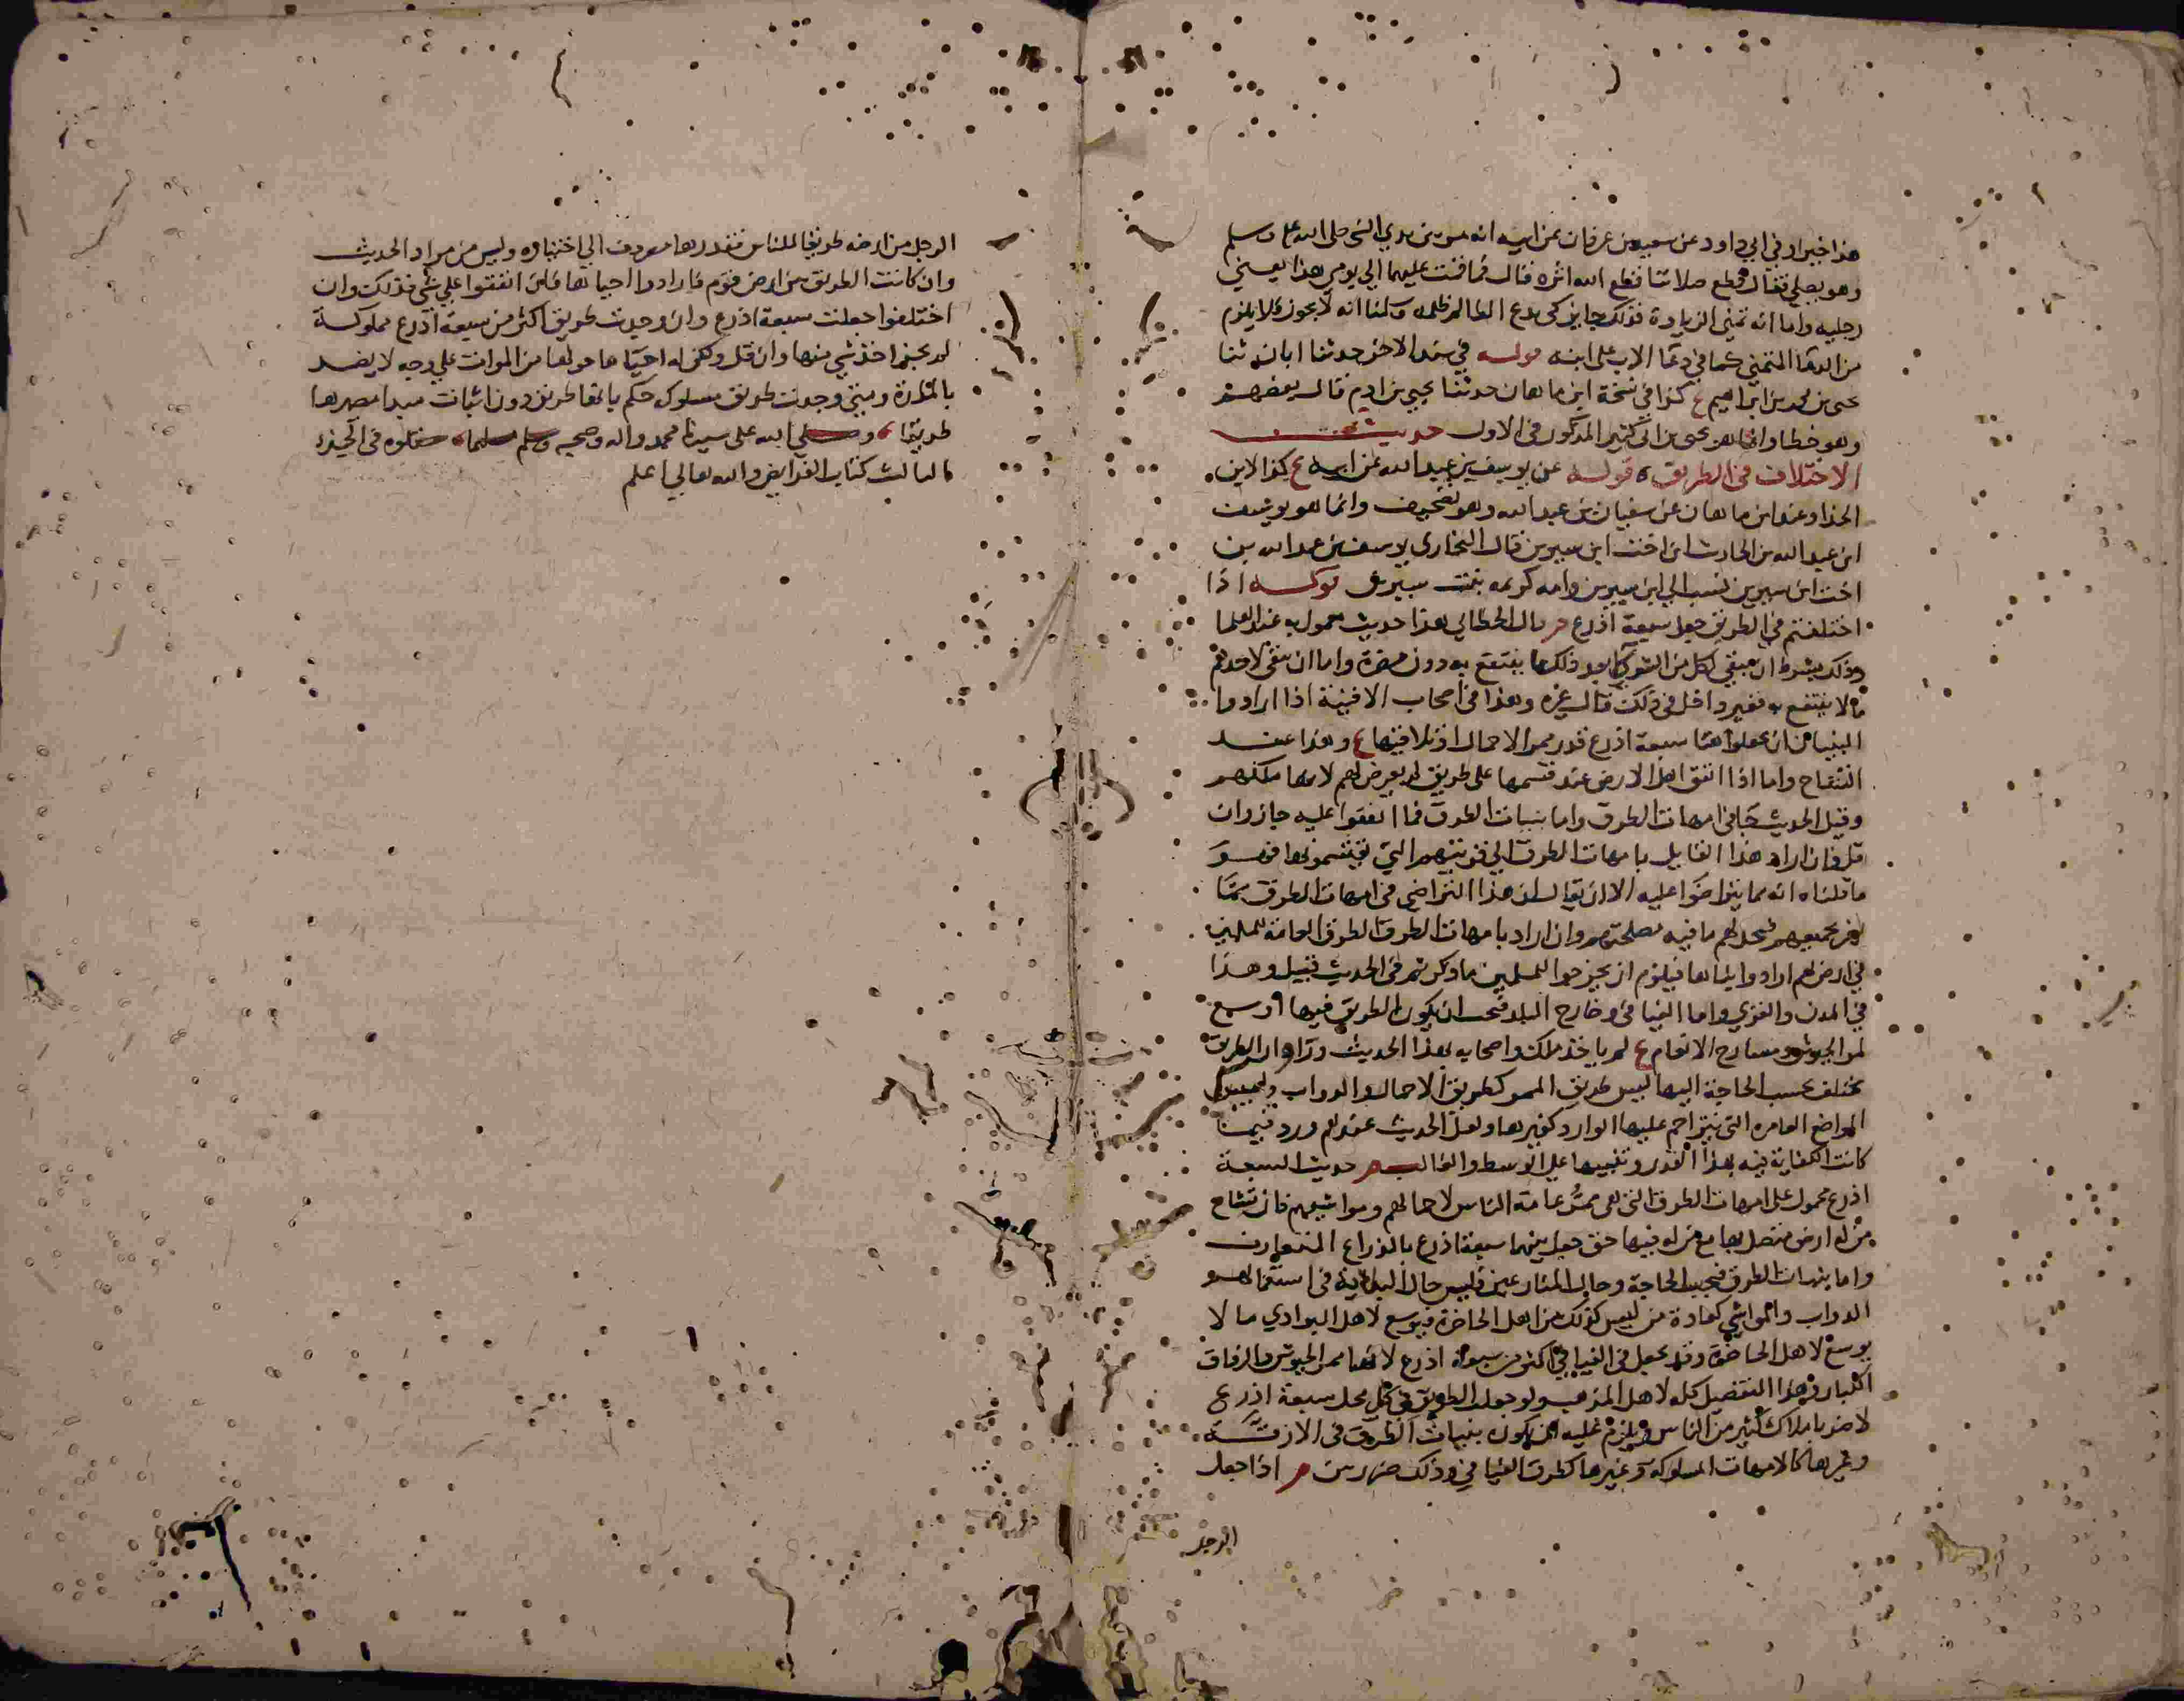 هذا خبرا وفي ابي داود عن سعيد بن غزوان عن ابيه انه مر بين يدي النبي صلى الله عليه وسلم
وهو يصلي فقال قطع صلاتنا قطع الله اثره قال فما قمت عليهما الي يومي هذا يعني
رجليه واما انه تمني الزيادة فذلك جايز كمن يدع الظالم ظلمه وقلنا انه لا يجوز فلا يلزم
من الدعا التمني كما في دعا الاب على ابنه قوله في سند الاخر حدثنا ابان ثنا
يحيى بن محمد بن ابراهيم ع كذا في نسخة ابن ماهان حدثنا يحيي بن ادم قال بعضهم
وهو خطا وانما هو يحيى بن ابي كثير المذكور في الاول حديث
الاختلاف في الطريق قوله عن يوسف بن عبد الله عن ابيه ع كذا لابن
الحذا وعند ابن ماهان عن سفيان بن عبد الله وهو تصحيف وانما هو يوسف
ابن عبد الله بن الحارث ابن اخت ابن سيرين قال البخاري يوسف بن عبد الله بن
اخت ابن سيرين نسب الي ابن سيرين وامه كريمه بنت سيرين قوله اذا
اختلفتم في الطريق جعل سبعة اذرع م قال الخطابي هذا حديث معمول به عند العلما
وذلك بشرط ان يبقي لكل من الشركا بعد ذلك ما ينتفع به دون مضرة واما ان بقي لاحدهم
ما لا ينتفع به فغير داخل في ذلك قال غيره وهذا في اصحاب الافنية اذا ارادوا
البنيان ان يجعلوا هنا سبعة اذرع قدر ممر الاحمال اذ تلاقيها ع وهذا عند
التشاح واما اذا اتفق اهل الارض عند قسمها على طريق لم يعرض لهم لانها ملكهم
وقيل الحديث جا في امهات الطرق واما بنيات الطرق فما اتفقوا عليه جاز وان
قل فان اراد هذا القايل بامهات الطرق التي في قريتهم التي يقتسمونها فهو
ما قلناه انه مما يتراضوا عليه الا ان يقال ان هذا التراضي في امهات الطرق مما
يضر بجميعهم فيحد لهم ما فيه مصلحتهم وان اراد بامهات الطرق الطرق العامة للمسلمين
في ارض لهم ارادوا ابنيانها فيلزم ان يخرجوا للمسلمين ما ذكر لهم في الحديث قيل وهذا
في المدن والقري واما الفيافي وخارج البلد فيجب ان يكون الطريق فيها اوسع
لمر الجيوش ومسارح الانعام ع لم ياخذ ملك واصحابه بهذا الحديث وراوا ان الطريق
تختلف بحسب الحاجة اليها ليس طريق الممر كطريق الاحمال والدواب وليس
المواضع العامره التي يتزاحم عليها الوارد كغيرها ولعل الحديث عندهم ورد فيما
كانت الكفاية فيه بهذا القدر وتنبيها على الوسط والغالب م حديث السبعة
اذرع محمول على امهات الطرق التي هي ممر عامة الناس لاحمالهم ومواشيهم فان تشاح
من له ارض متصل بها مع من له فيها حق جعل بينهما سبعة اذرع بالذراع المتعارف
واما بنيات الطرق فبحسب الحاجة وحال المتنازعين فليس حال البادية في استعمالهم
الدواب والمواشي كعادة من ليس كذلك من اهل الحاضرة فيوسع لاهل البوادي ما لا
يوسع لاهل الحاضرة وقد يجعل في الفيافي اكثر من سبعة اذرع لانها ممر الجيوش والرفاق
الكبار وهذا التفصيل كله لاهل المذهب ولو جعل الطريق في كل محل سبعة اذرع
لاضر باملاك كثير من الناس ويلزم عليه ان يكون بنيات الطرق في الازقة
وغيرها كالامهات المسلوكة وغيرها كطرق الفيافي وذلك ضرر بين م اذا جعل
الرجل
الرجل من ارضه طريقا للناس فقدرها معروف الي اختياره وليس من مراد الحديث
وان كانت الطريق من ارض قوم فارادوا احياها فان اتفقوا على شي فذلك وان
اختلفوا جعلت سبعة اذرع وان وجدت طريق اكثر من سبعة اذرع مملوكة
لم يجز اخذ شي منها وان قل ولكن له احيا ما حولها من الموات علي وجه لا يضر
بالمارة ومتى وجدت طريق مسلوك حكم بانها طريق دون اثبات مبدا مصيرها
طريقا وصلي الله على سيدنا محمد واله وصحبه وسلم تسليما يتلوه في الجزء
الثالث كتاب الفرايض والله تعالي اعلم